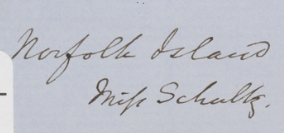 Norfolk Island
Miss Schultz.